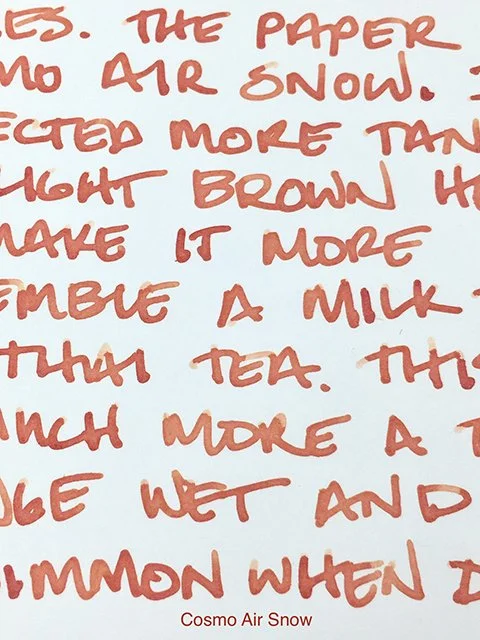 LES. THE PAPER
MO AIR SNOW.
ECTED MORE TAN
LIGHT BROWN H
MAKE IT MORE
EMBLE A MILK
THAI TEA. THIS
MUCH MORE A
NGE WET AND
OMMON WHEN D
Cosmo Air Snow